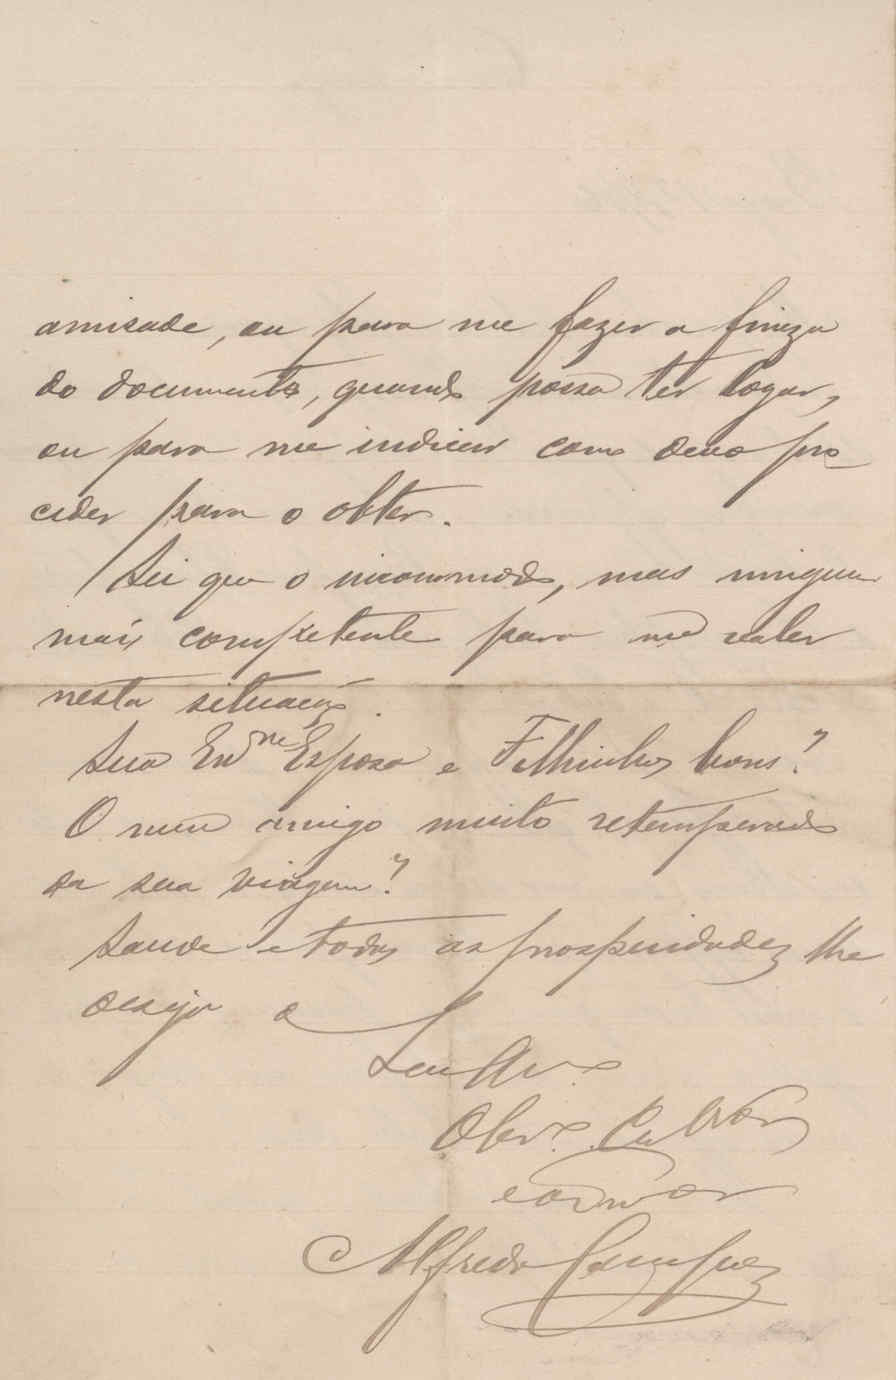 amisade, ou para me fazer a fineza
do documento, quando possa ter logar,
ou para me indicar como devo pro-
ceder para o obter.
Sei que o incommodo, mas ninguem
mais competente para me valer
nesta situação.
Sua Esposa e Filhinhos bons?
O meu amigo muito retemperado
da sua viagem?
Saude e todas as prosperidades lhe
deseja o
Seu
Alfredo